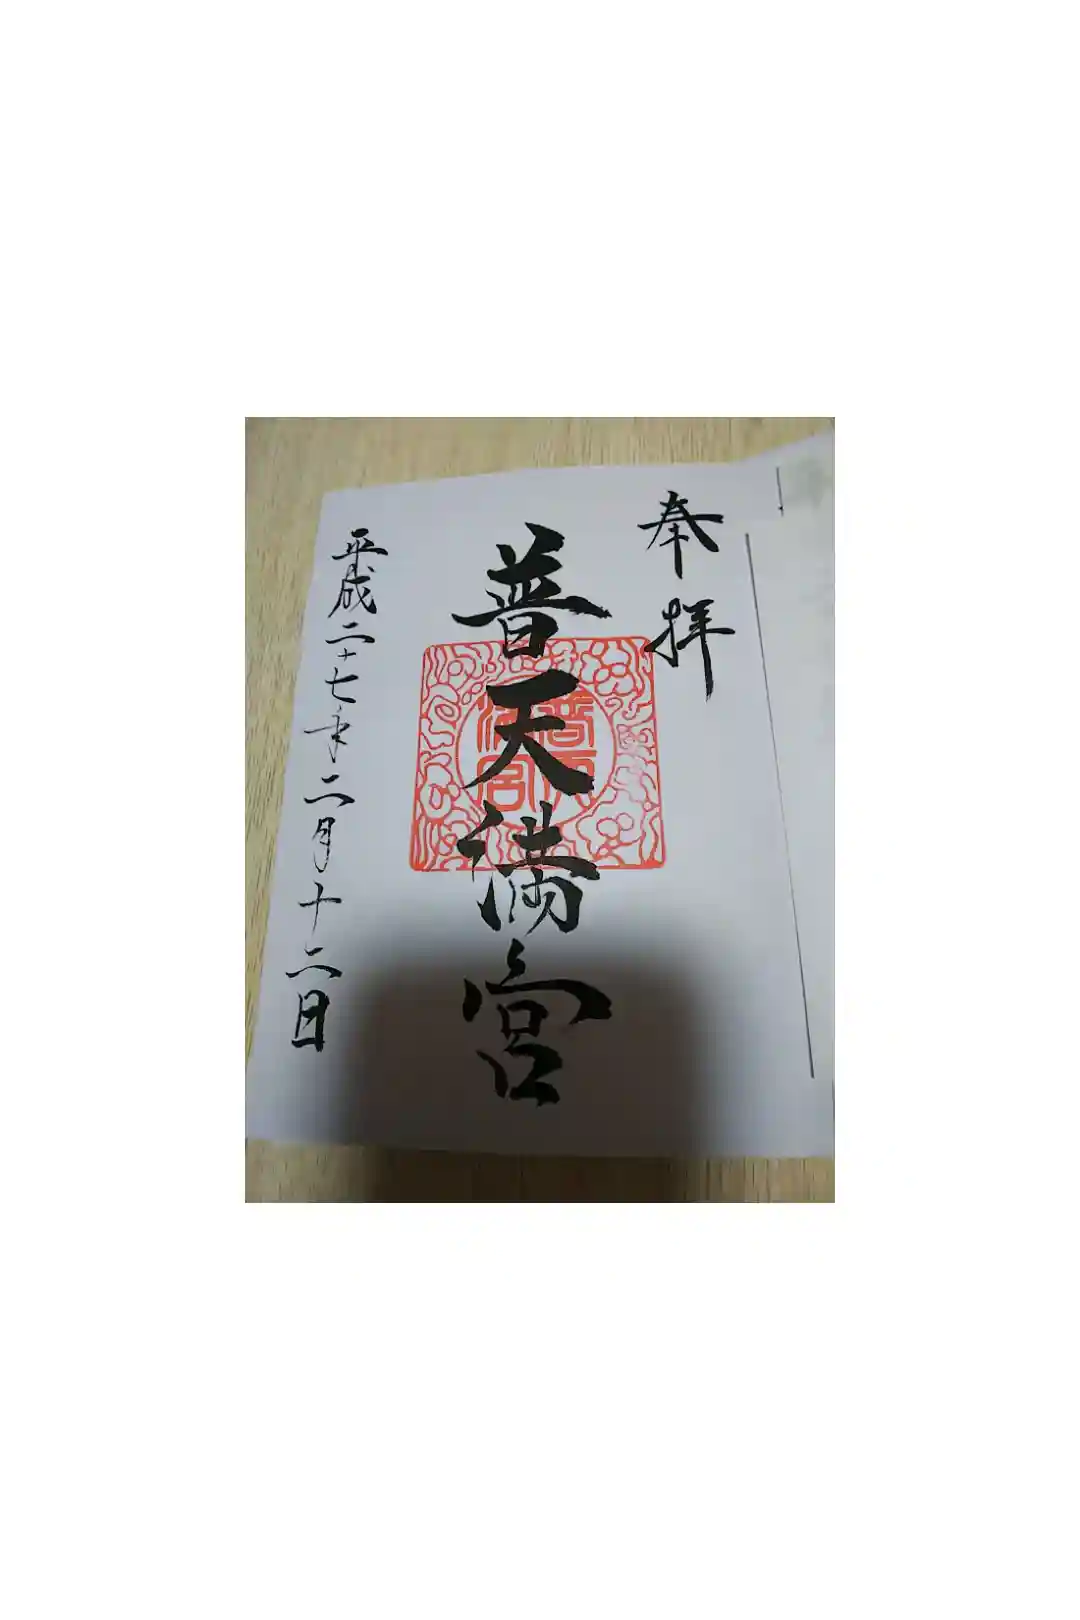 奉拝
普天満宮
普天満宮
平成二十七年二月十二日